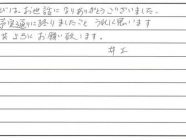 びは、お世話になりありがとうございました。
予定通りに終りましたこと うれしく思います
ようにお願い致します。
井上